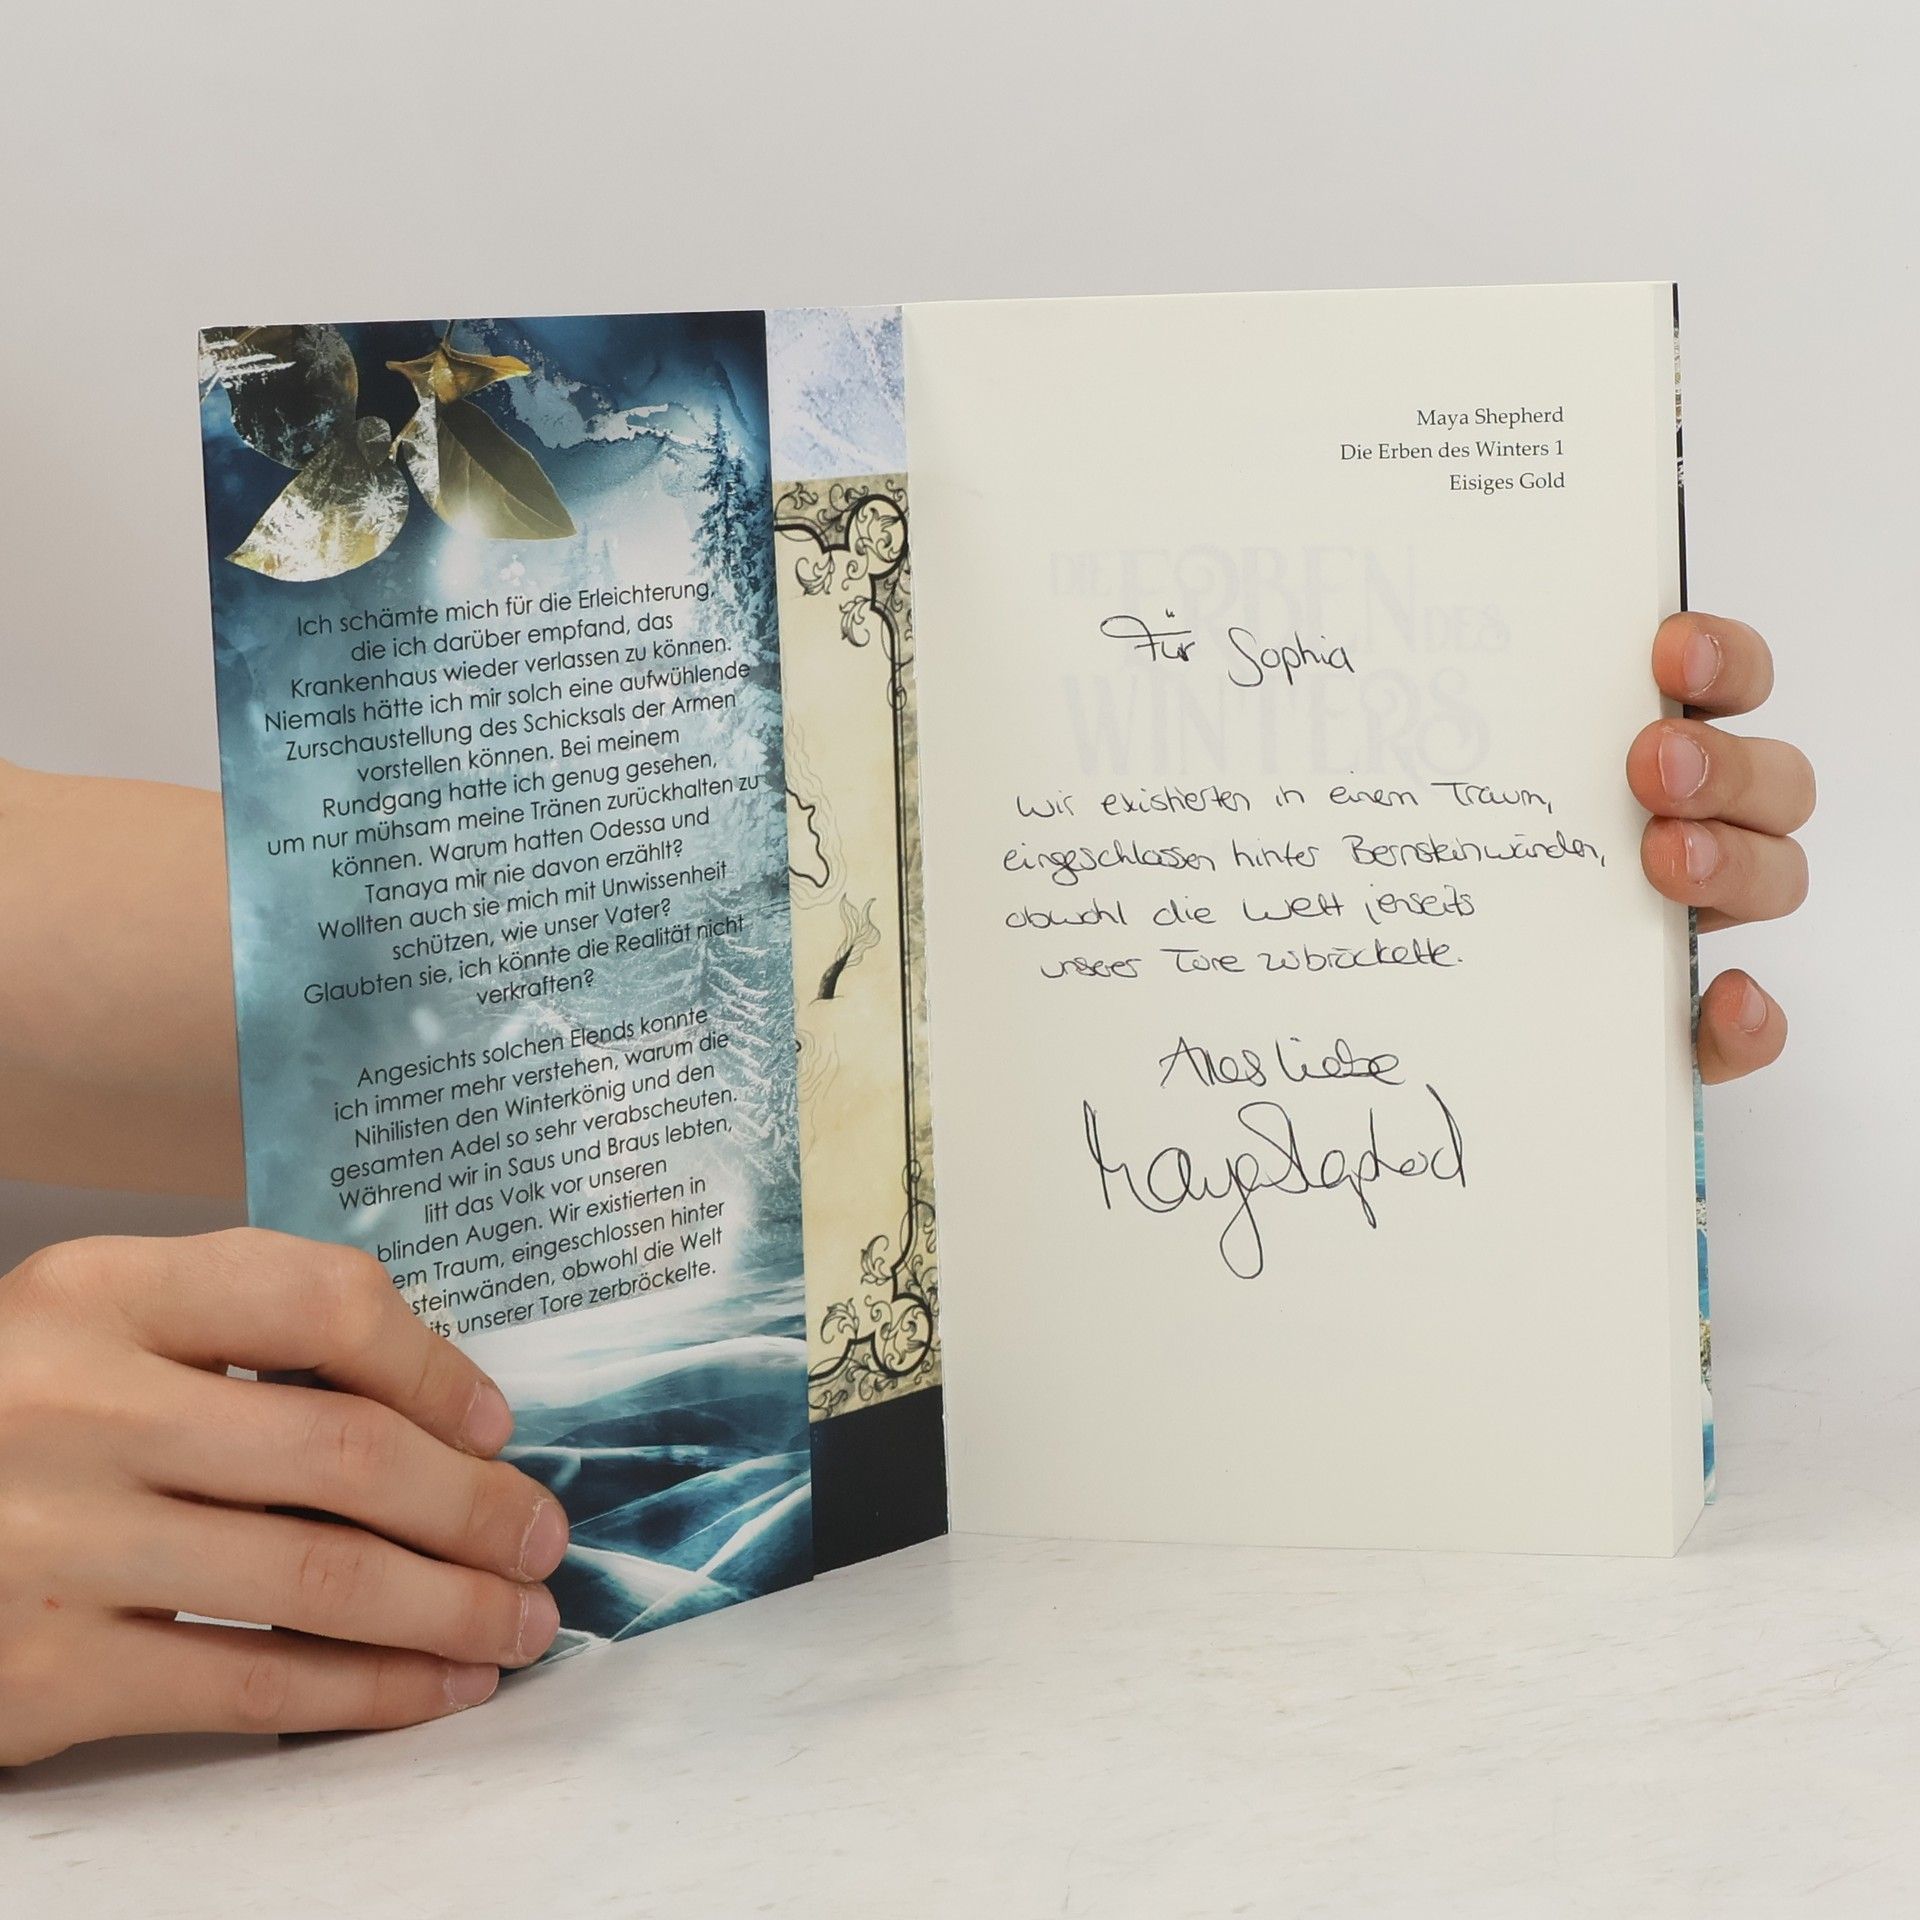 Ich schämte mich für die Erleichterung,
die ich darüber empfand, das
Krankenhaus wieder verlassen zu können.
Niemals hätte ich mir solch eine aufwühlende
Zurschaustellung des Schicksals der Armen
vorstellen können. Bei meinem
Rundgang hatte ich genug gesehen,
um nur mühsam meine Tränen zurückhalten zu
können. Warum hatten Odessa und
Tanaya mir nie davon erzählt?
Wollten auch sie mich mit Unwissenheit
schützen, wie unser Vater?
Glaubten sie, ich könnte die Realität nicht
verkraften?
Angesichts solchen Elends konnte
ich immer mehr verstehen, warum die
Nihilisten den Winterkönig und den
gesamten Adel so sehr verabscheuten.
Während wir in Saus und Braus lebten,
litt das Volk vor unseren
blinden Augen. Wir existierten in
em Traum, eingeschlossen hinter
steinwänden, obwohl die Welt
its unserer Tore zerbröckelte.
Maya Shepherd
Die Erben des Winters 1
Eisiges Gold
DIE ERBEN DES
WINTERS
Für Sophia
Wir existierten in einem Traum,
eingeschlossen hinter Bernsteinwänden,
obwohl die Welt jenseits
unserer Tore zerbröckelte.
Alles Liebe
Maya Shepherd